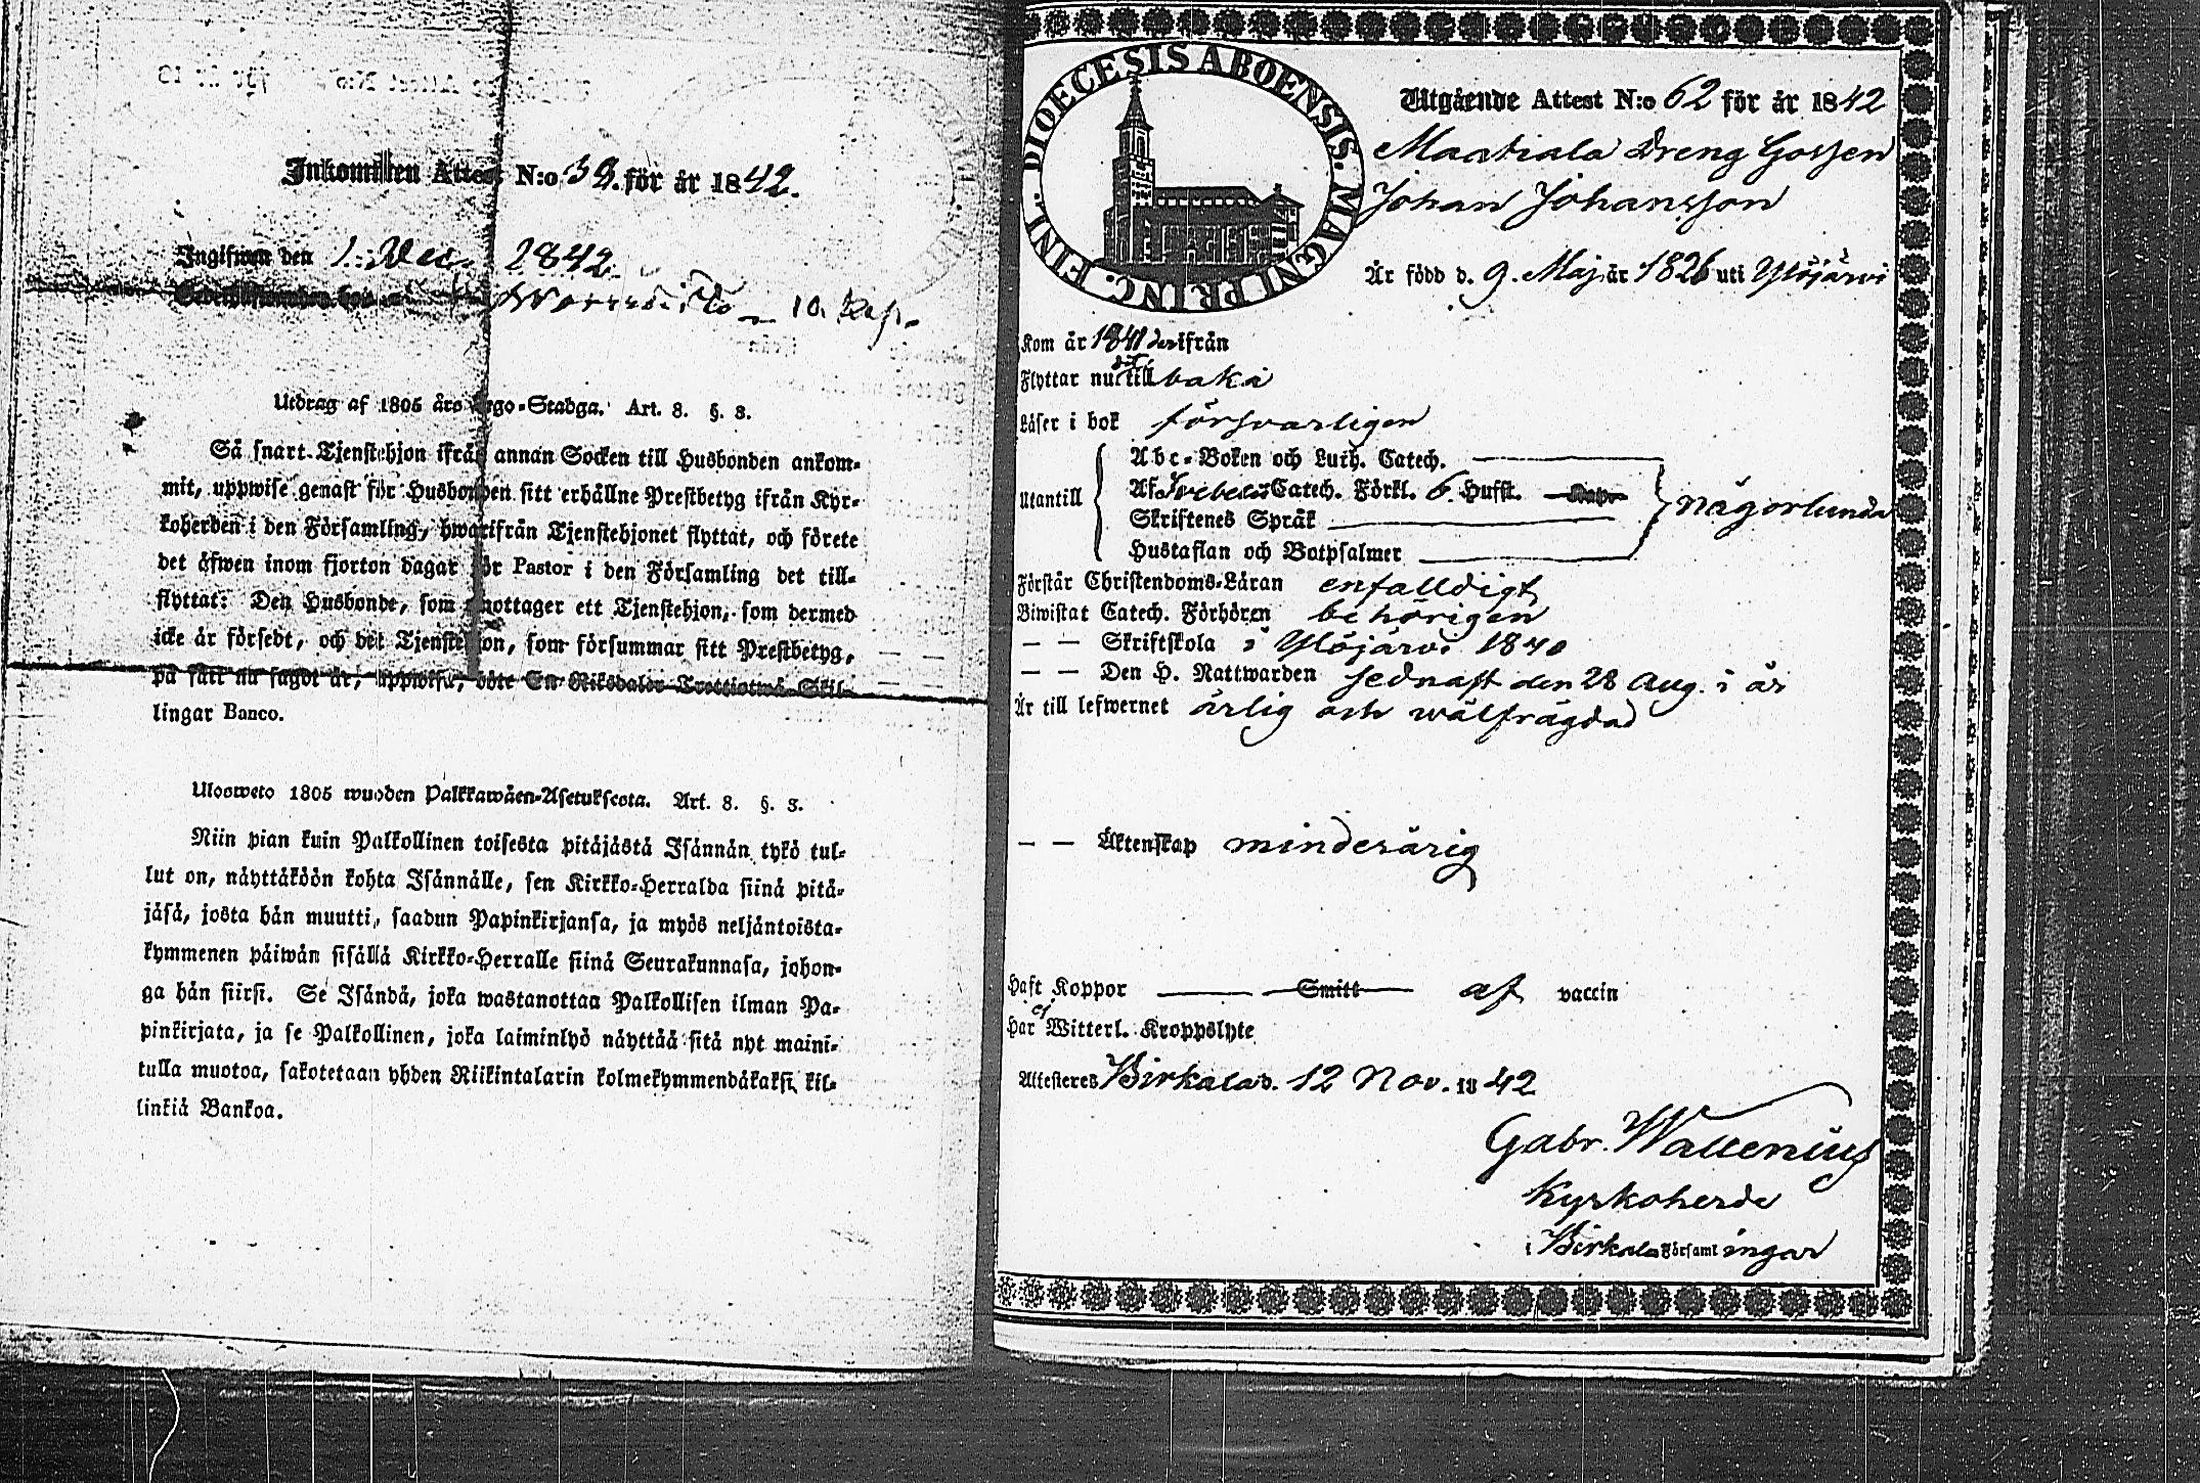 Inkommen Attest N:o 39. för år 1842.
Ingifwen den 1. Dec. 1842.
10. Kap.
Utdrag af 1805 års Lego-Stadga. Art. 8. §. 3.
Så snart Tjenstehjon ifrån annan Socken till Husbonden ankom-
mit, uppwise genast för Husbonden sitt erhållne Prestbetyg ifrån Kyr-
koherden i den Församling, hwarifrån Tjenstehjonet flyttat, och förete
det äfwen inom fjorton dagar för Pastor i den Församling det till-
flyttat: Den Husbonde, som emottager ett Tjenstehjon, som dermed
icke är försedt, och det Tjenstehjon, som försummar sitt Prestbetyg,
på sätt nu sagdt är, uppwisa, böte En Riksdaler Trettiotwå Skil-
lingar Banco.
Ulosweto 1805 wuoden Palkkawäen-Asetuksesta. Art. 8. §. 3.
Niin pian kuin Palkollinen toisesta pitäjästä Isännän tykö tul-
lut on, näyttäköön kohta Isännälle, sen Kirkko-Herralda siinä pitä-
jäsä, josta hän muutti, saadun Papinkirjansa, ja myös neljäntoista-
kymmenen päiwän sisällä Kirkko-Herralle siinä Seurakunnasa, johon-
ga hän siirsi. Se Isändä, joka wastanottaa Palkollisen ilman Pa-
pinkirjata, ja se Palkollinen, joka laiminlyö näyttää sitä nyt maini-
tulla muotoa, sakotetaan yhden Riikintalarin kolmekymmendäkaksi kil-
linkiä Bankoa.
DIOECESIS ABOENSIS. MAGNI PRINC. FINL.
Utgående Attest N:o 62 för år 1842
Maatiala Dreng Gossen
Johan Johansson
Är född d. 9. Maj år 1826 uti Ylöjärvi
Kom år 1841 derifrån
Flyttar nu dit tillbaka
Läser i bok försvarligen
Utantill
Abc-Boken och Luth. Catech.
Af Svebelii Catech. Förkl. 6 Hufst.
Skriftenes Språk
Hustaflan och Botpsalmer
någorlunda
Förstår Christendoms-Läran enfalldigt
Biwistat Catech. Förhören behörigen
— — Skriftskola i Ylöjärvi 1840
— — Den H. Nattwarden sednast den 28 Aug. i år
Är till lefwernet ärlig och wälfrägdad
— — Äktenskap minderårig
Haft Koppor Smitt af vaccin
Har ej Witterl. Kroppslyte
Attesteres Birkala d. 12 Nov. 1842
Gabr. Wallenius
Kyrkoherde
i Birkala Församlingar